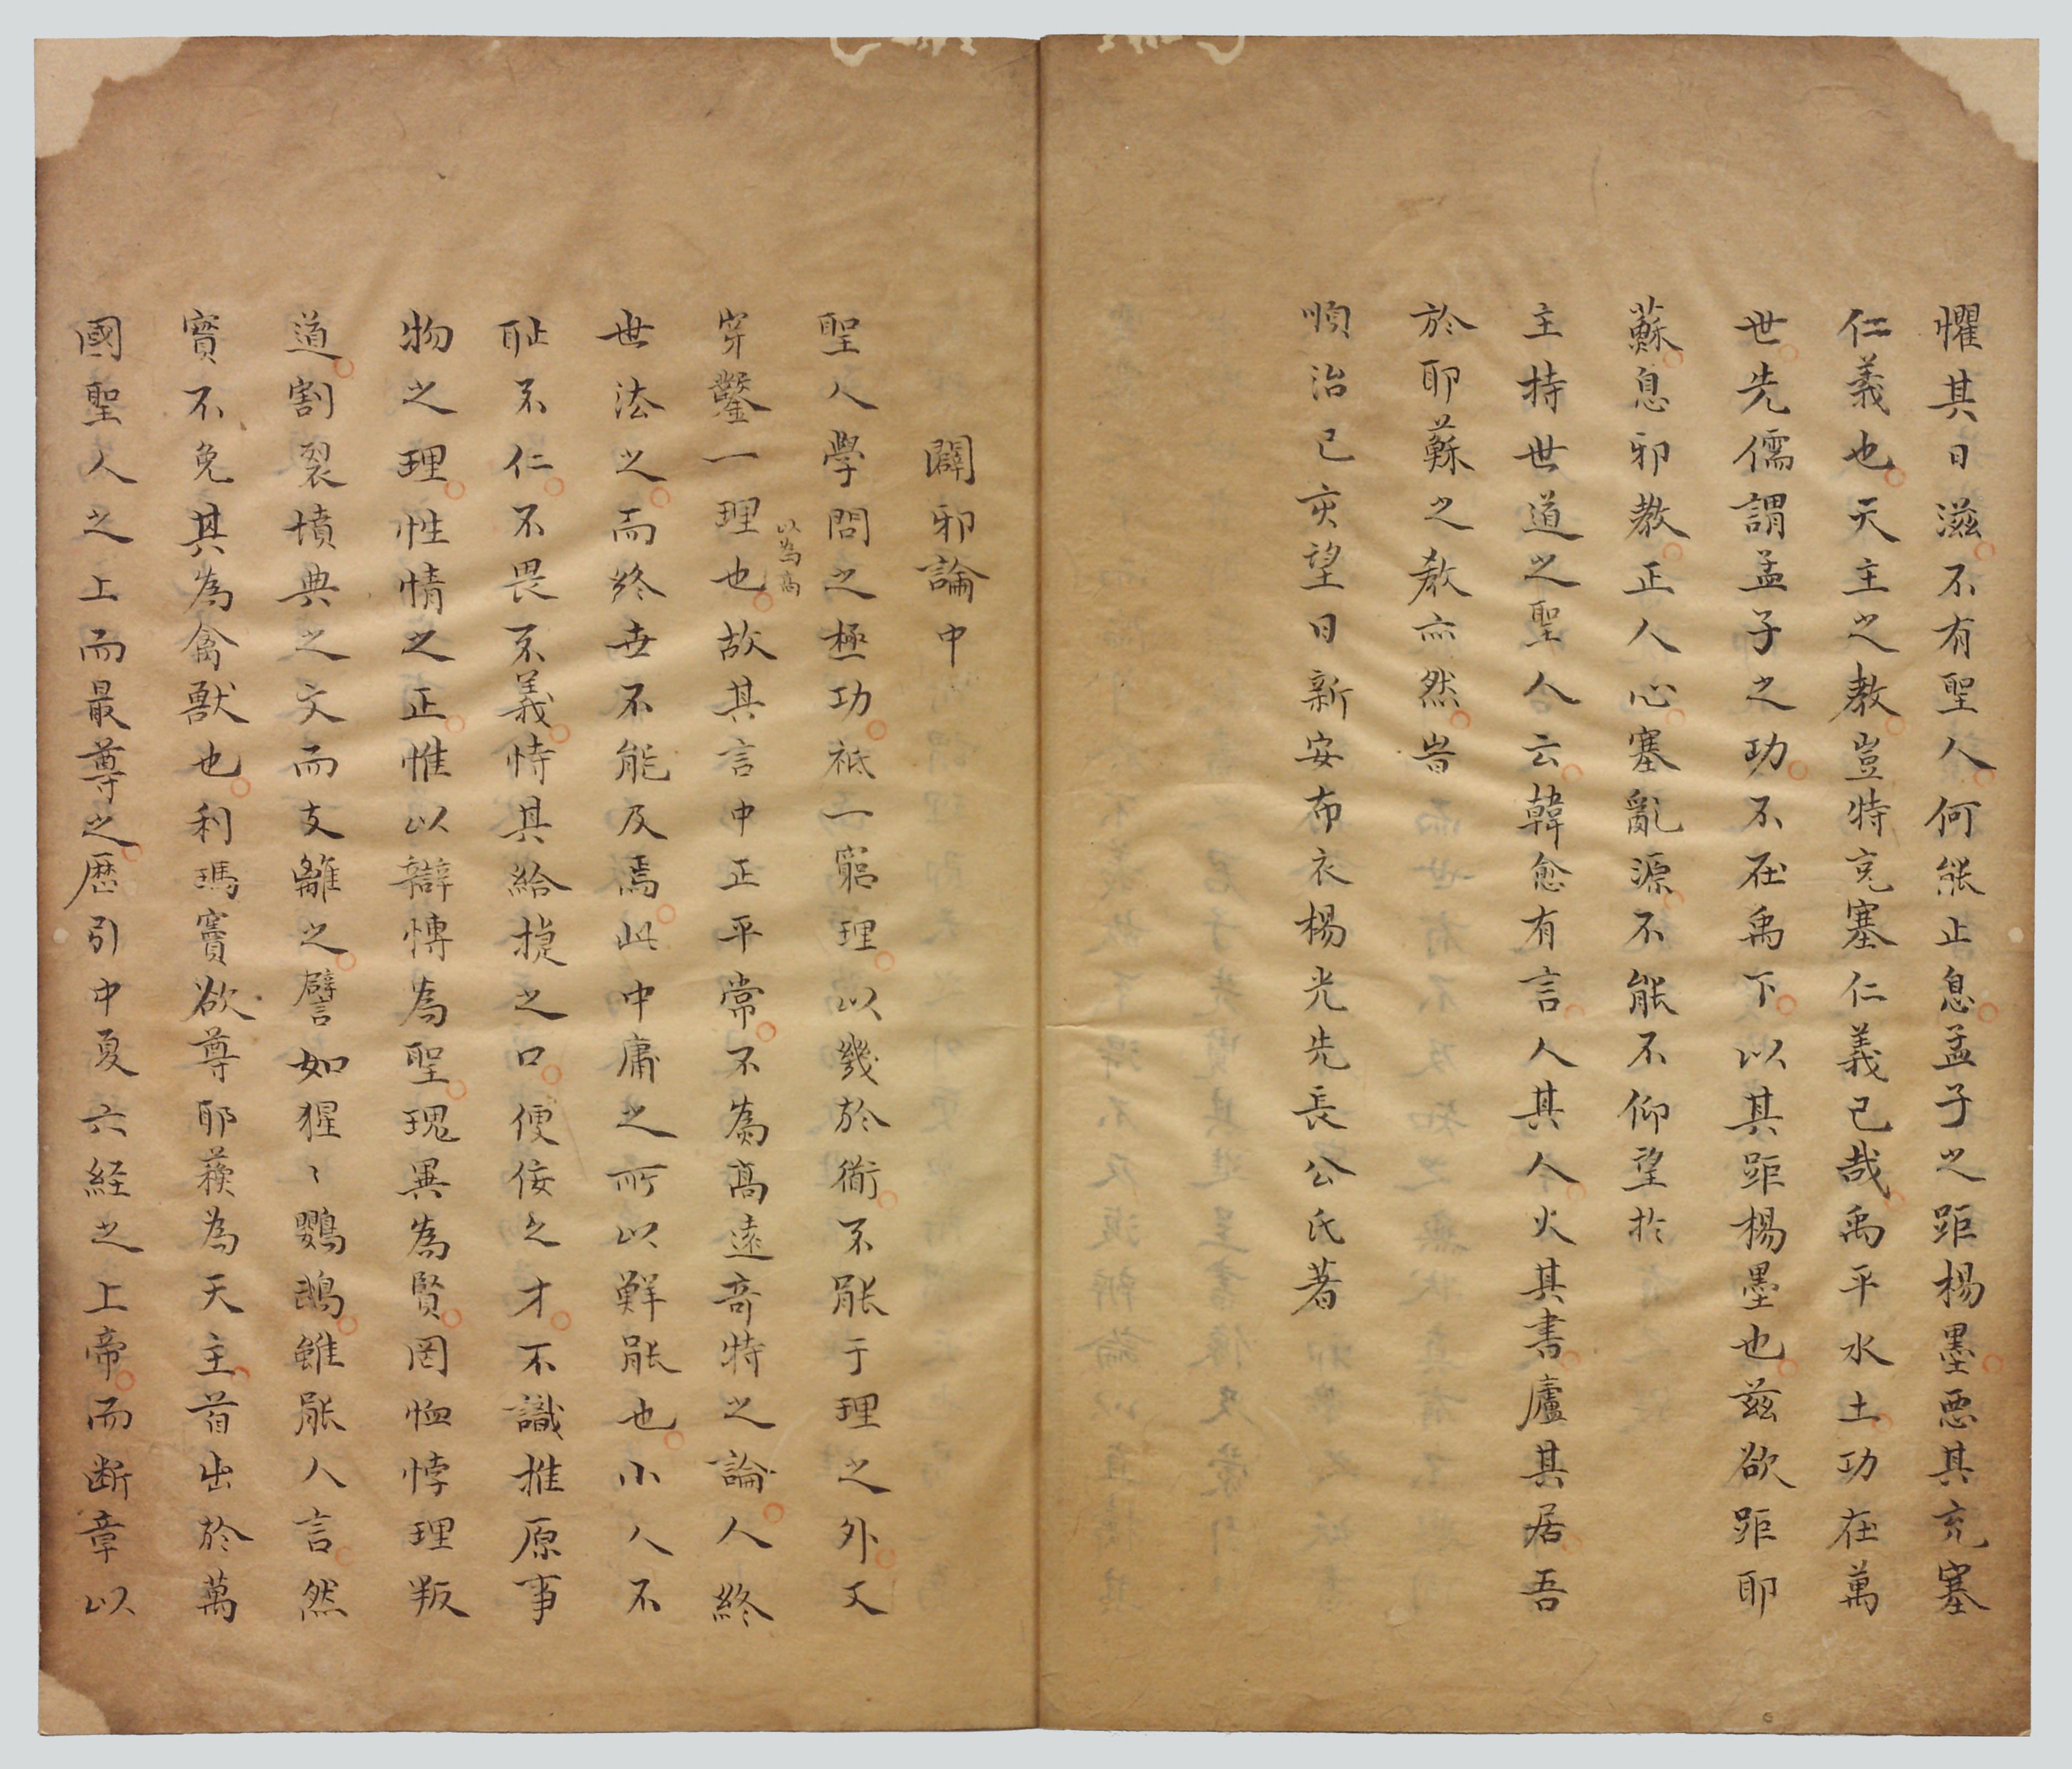 懼其日滋不有聖人何能止息孟子之距楊墨惡其充塞
仁義也天主之教豈特充塞仁義已哉禹平水土功在萬
世先儒謂孟子之功不在禹下以其距楊墨也茲欲距耶
蘇息邪教正人心塞亂源不能不仰望於
主持世道之聖人云韓愈有言人其人火其書廬其居吾
於耶蘇之教亦然旹
順治己亥望日新安布衣楊光先長公氏著
闢邪論中
聖人學問之極功祗一窮理以幾於衜不能于理之外又
穿鑿一理也故其言中正平常不為高遠奇特之論人終
以為高
世法之而終世不能及焉此中庸之所以鮮能也小人不
耻不仁不畏不義恃其給捷之口便佞之才不識推原事
物之理性情之正惟以辯博為聖瑰異為賢罔恤悖理叛
道割裂墳典之文而支離之譬如猩〻鸚鵡雖能人言然
實不免其為禽獸也利瑪竇欲尊耶蘇為天主首出於萬
國聖人之上而最尊之歷引中夏六経之上帝而断章以